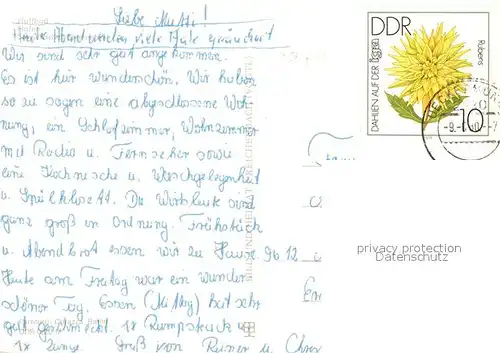 Liebe Mutti!
Heute Abend werden viele Aale geräuchert
Wir sind sehr gut angekommen.
Es ist hier wunderschön. Wir haben
so zu sagen eine abgeschlossene Woh-
nung, ein Schlafzimmer, Wohnzimmer
mit Radio u. Fernseher sowie
eine Kochnische u. Waschgelegenheit
u. Spülklosett. Die Wirtsleute sind
ganz groß in Ordnung. Frühstück
u. Abendbrot essen wir zu Hause.
Heute am Freitag war ein wunder
schöner Tag. Essen (Mittag) hat sehr
gut geschmeckt. 1x Rumpsteak u.
1x Zunge. Gruß von Rainer u. Chr
DDR
DAHLIEN AUF DER iga
Rubens
10
privacy protection
Datenschutz